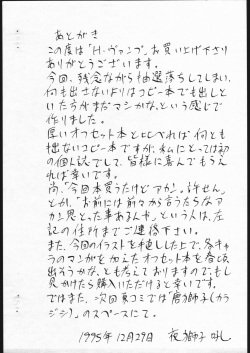 あとがき
この度は「H.ヴァンプ」お買い上げ下さり
ありがとうございます。
今回、残念ながら抽選落ちしてしまい、
何も出さないよりはコピー本でも出しと
いた方がまだマシかな、という感じで
作りました。
厚いオフセット本と比べれば何とも
拙ないコピー本ですが、私にとっては初
の個人誌でして、皆様に喜んでもらえ
れば幸いです。
尚、「今回本買うたけどアカン。許せん」
とか、「お前には前々から言うたろなア
カン思とった事あるんや」という人は、左
記の住所までご連絡下さい。
また、今回のイラストを種にした上で、各キャ
ラのマンガを加えたオフセット本を春頃
出そうかな、とも考えておりますのでもし
見かけたら購入いただけると幸いです。
ではまた、次回東コミでは「唐獅子(カラ
ジシ)」のスペースにて。
1995年12月29日 夜獅子